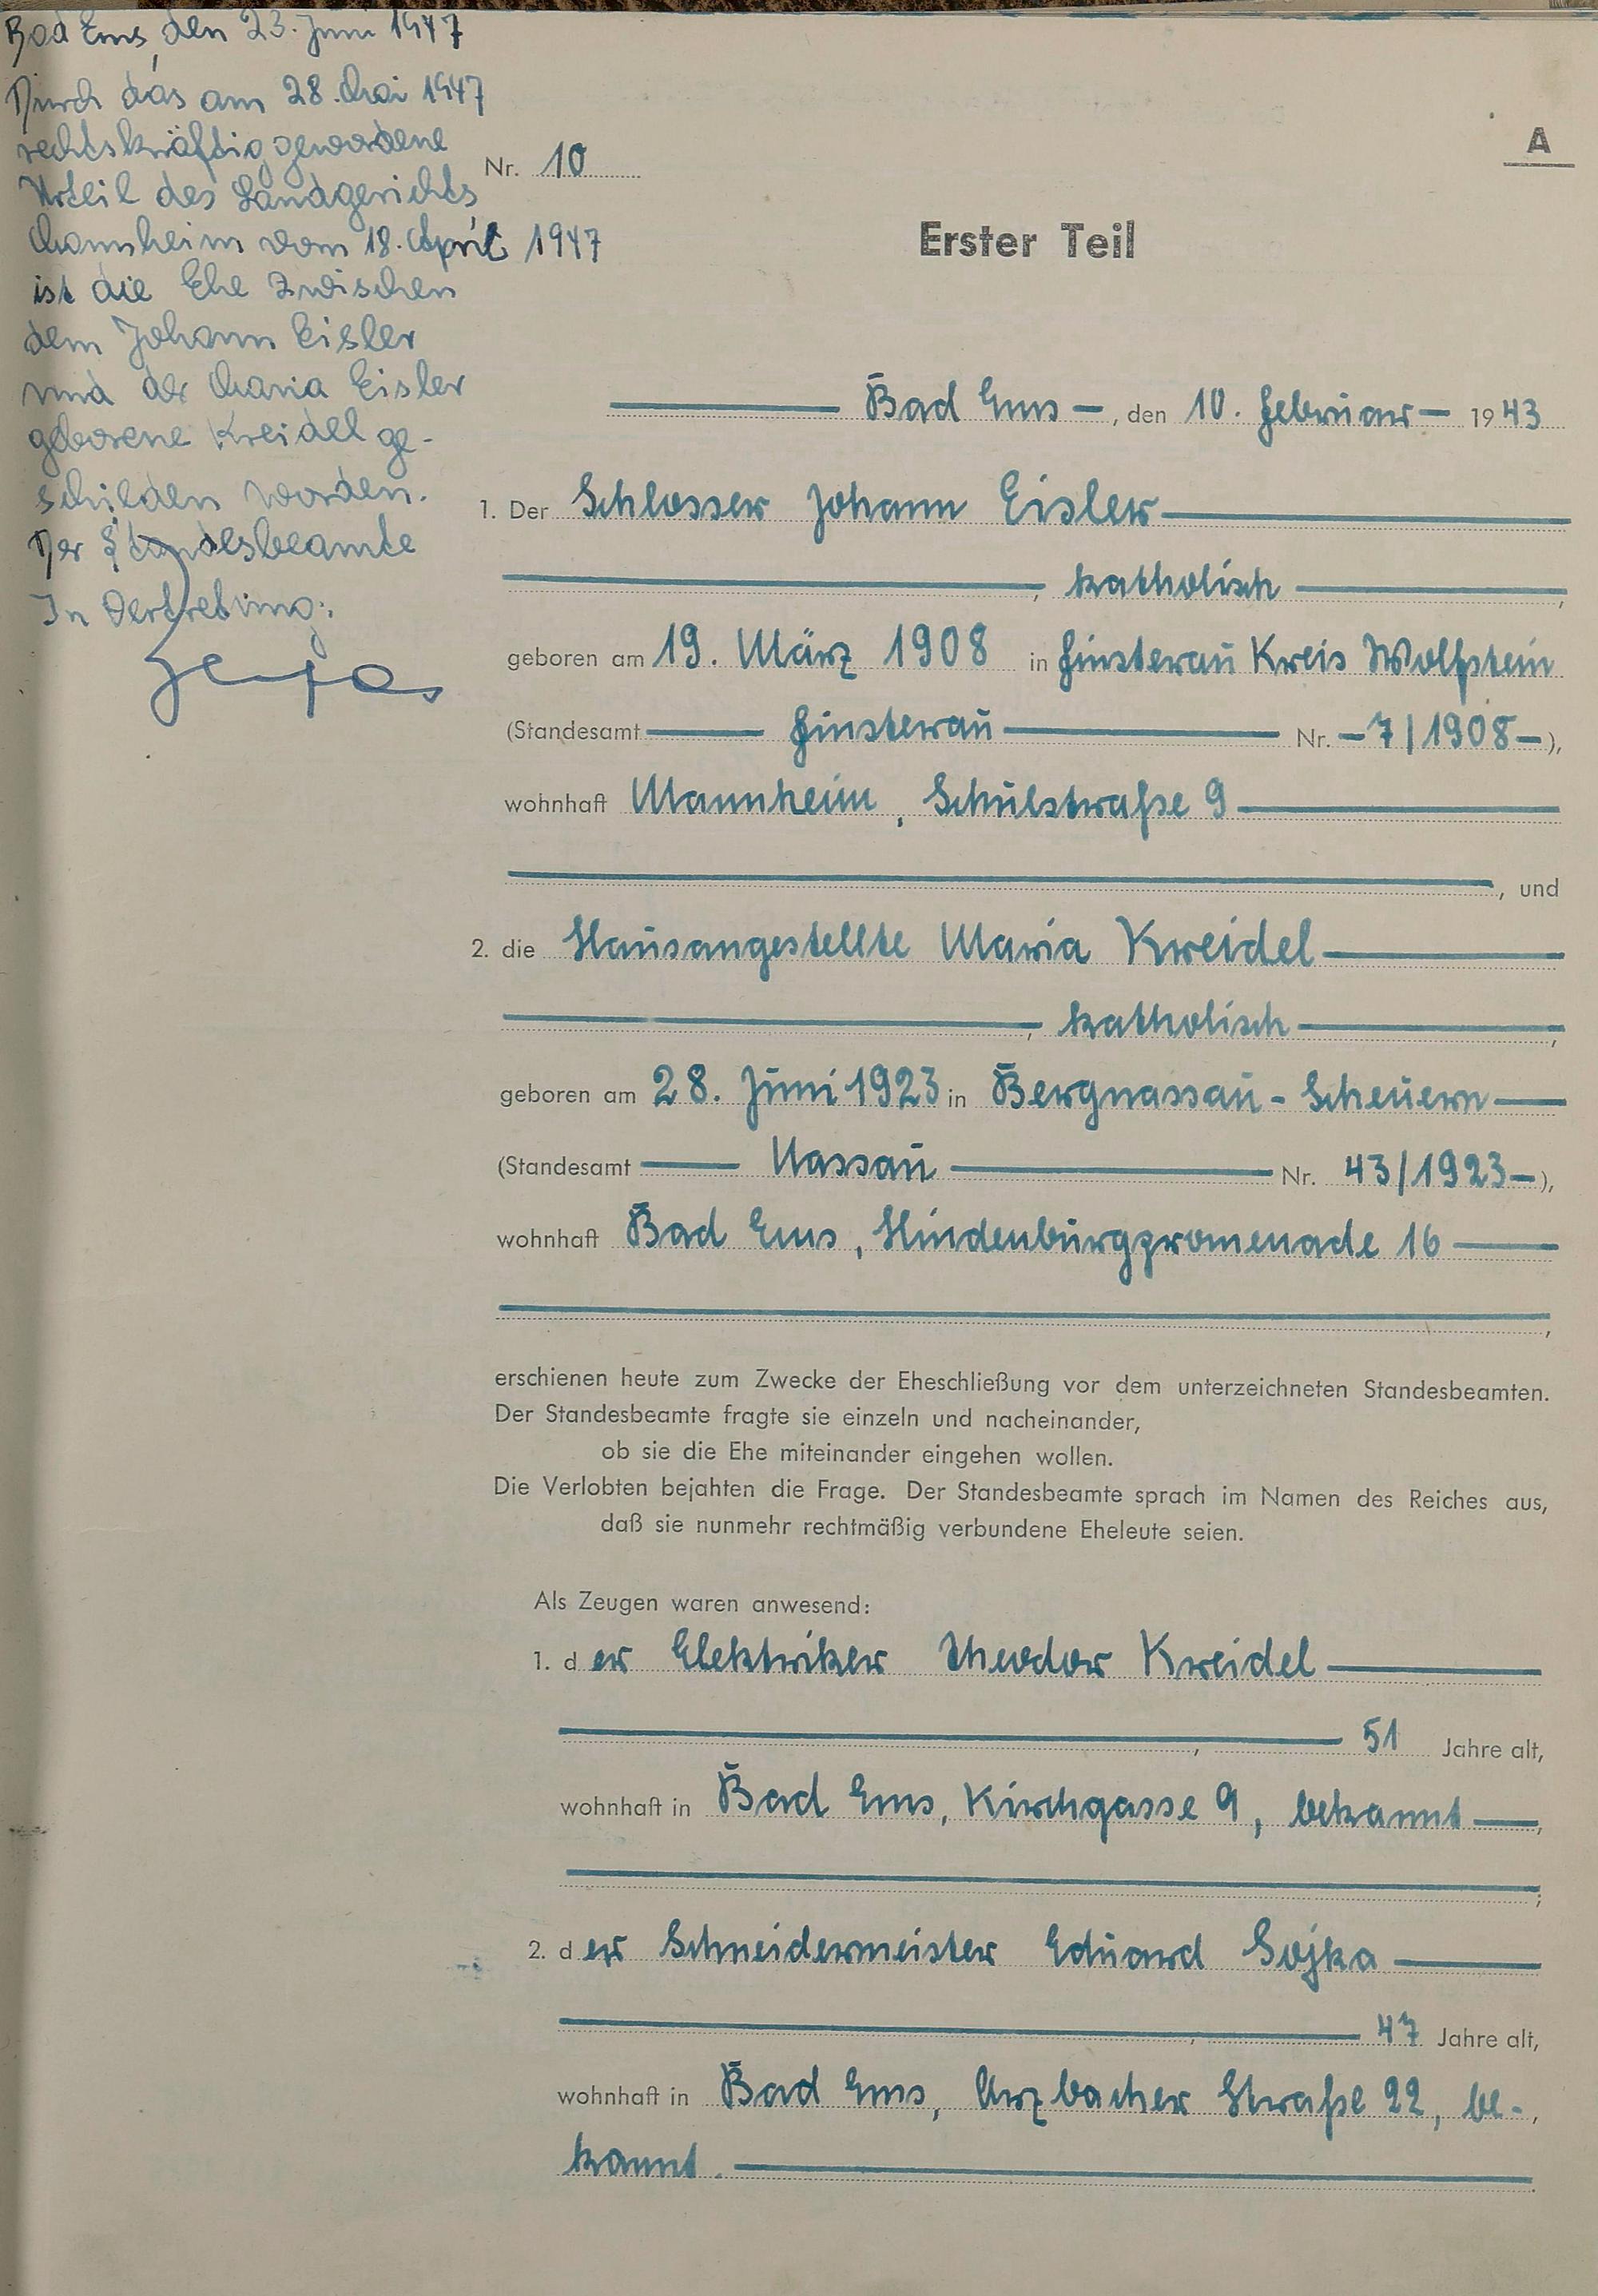 Bad Ems, den 23. Juni 1947
Durch das am 28. Mai 1947
rechtskräftig gewordene
Urteil des Landgerichts
Mannheim vom 18. April 1947
ist die Ehe zwischen
dem Johann Eisler
und der Maria Eisler
geborene Kreidell ge-
schieden worden.
Der Standesbeamte
In Vertretung:
A
Nr. 10
Erster Teil
Bad Ems, den 10. Februar 1943
1. Der Schlosser Johann Eisler
, katholisch ,
geboren am 19. März 1908 in Finsterau Kreis Wolfstein
(Standesamt Finsterau Nr. 7/1908),
wohnhaft Mannheim, Schulstraße 9
, und
2. die Hausangestellte Maria Kreidel
, katholisch ,
geboren am 28. Juni 1923 in Bergnassau-Scheuern
(Standesamt Nassau Nr. 43/1923),
wohnhaft Bad Ems, Hindenburgpromenade 16
,
erschienen heute zum Zwecke der Eheschließung vor dem unterzeichneten Standesbeamten.
Der Standesbeamte fragte sie einzeln und nacheinander,
ob sie die Ehe miteinander eingehen wollen.
Die Verlobten bejahten die Frage. Der Standesbeamte sprach im Namen des Reiches aus,
daß sie nunmehr rechtmäßig verbundene Eheleute seien.
Als Zeugen waren anwesend:
1. der Elektriker Theodor Kreidel
, 51 Jahre alt,
wohnhaft in Bad Ems, Kirchgasse 9, bekannt ,
;
2. der Schneidermeister Eduard Sojka
, 47 Jahre alt,
wohnhaft in Bad Ems, Arzbacher Straße 22, be-,
kannt.